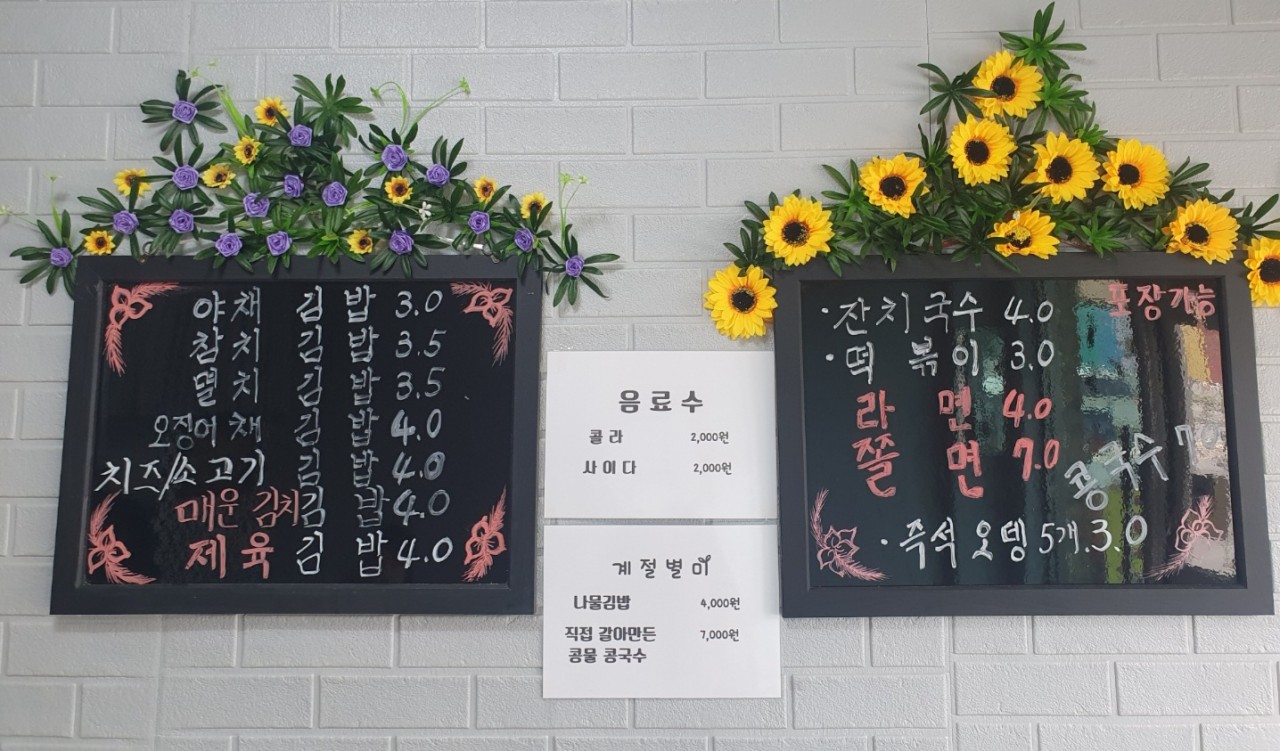 야채 김밥 3.0
참치 김밥 3.5
멸치 김밥 3.5
오징어채 김밥 4.0
치즈/소고기 김밥 4.0
매운 김치김밥 4.0
제육 김밥 4.0
음료수
콜라 2,000원
사이다 2,000원
계절별미
나물김밥 4,000원
직접 갈아만든 7,000원
콩물 콩국수
포장가능
·잔치국수 4.0
·떡볶이 3.0
라면 4.0
쫄면 7.0
콩국수 7.0
·즉석오뎅 5개.3.0